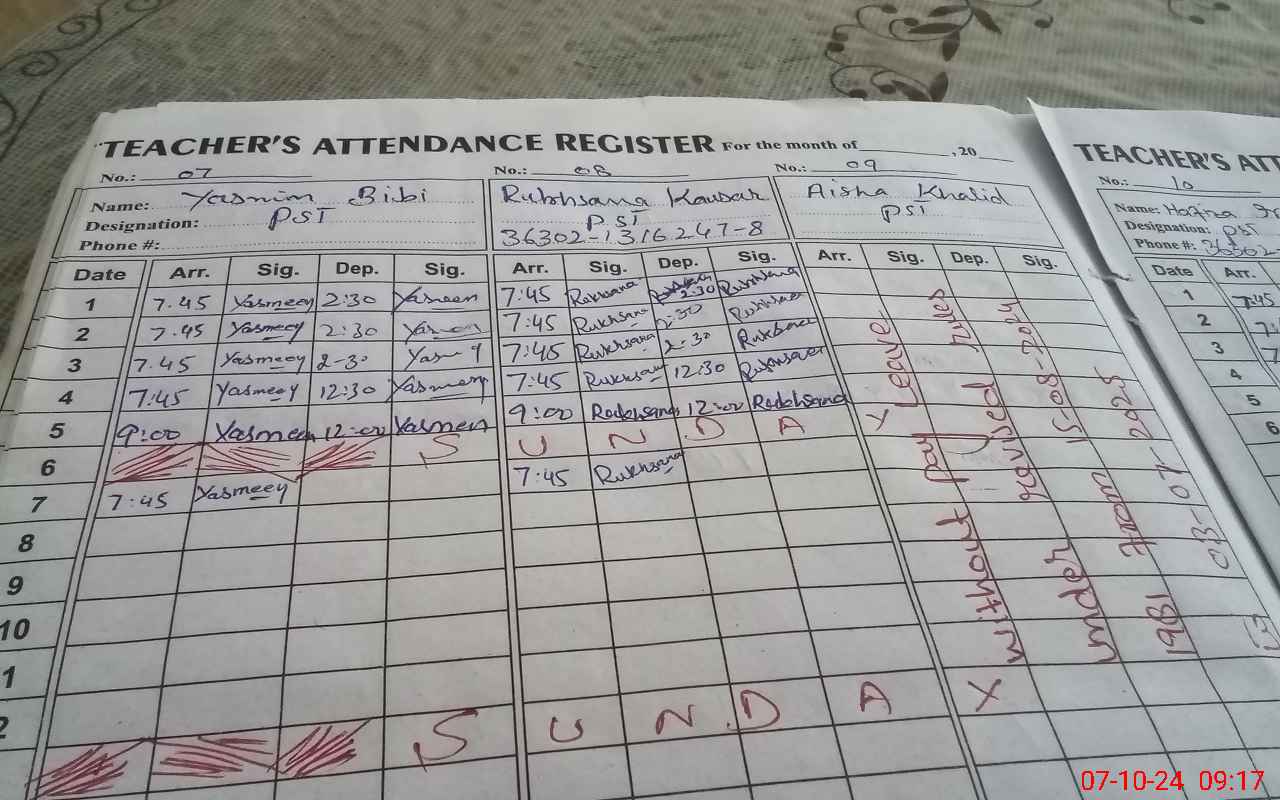 TEACHER'S ATTENDANCE REGISTER For the month of , 20
No.: 07 No.: 08 No.: 09
Name: Yasmim Bibi Rukhsana Kausar Aisha Khalid
Designation: PST PST PST
Phone #: 36302-1316247-8
Date Arr. Sig. Dep. Sig. Arr. Sig. Dep. Sig. Arr. Sig. Dep. Sig.
1 7.45 Yasmeey 2:30 Yasmeen 7:45 Rukhsana 2:30 Rukhsana
2 7.45 Yasmeey 2:30 7:45 Rukhsana 2:30 Rukhsana
3 7.45 Yasmeey 2-30 7:45 Rukhsana 2-30 Rukhsana
4 7:45 Yasmeey 12:30 Yasmeey 7:45 Rukhsana 12:30 Rukhsana
5 9:00 Yasmeen 12:00 Yasmen 9:00 Rukhsana 12:00 Rukhsana
6 S U N D A Y
7 7:45 Yasmeey 7:45 Rukhsana
8
9
10
1
2
S U N D A Y
Leave
without pay
under revised rules
1981 from 15-08-2024
2025
TEACHER'S ATT
No.: 10
Name:
Designation: PST
Phone #: 36302
Date Arr.
1 7:45
2
3
4
5
6
07-10-24 09:17